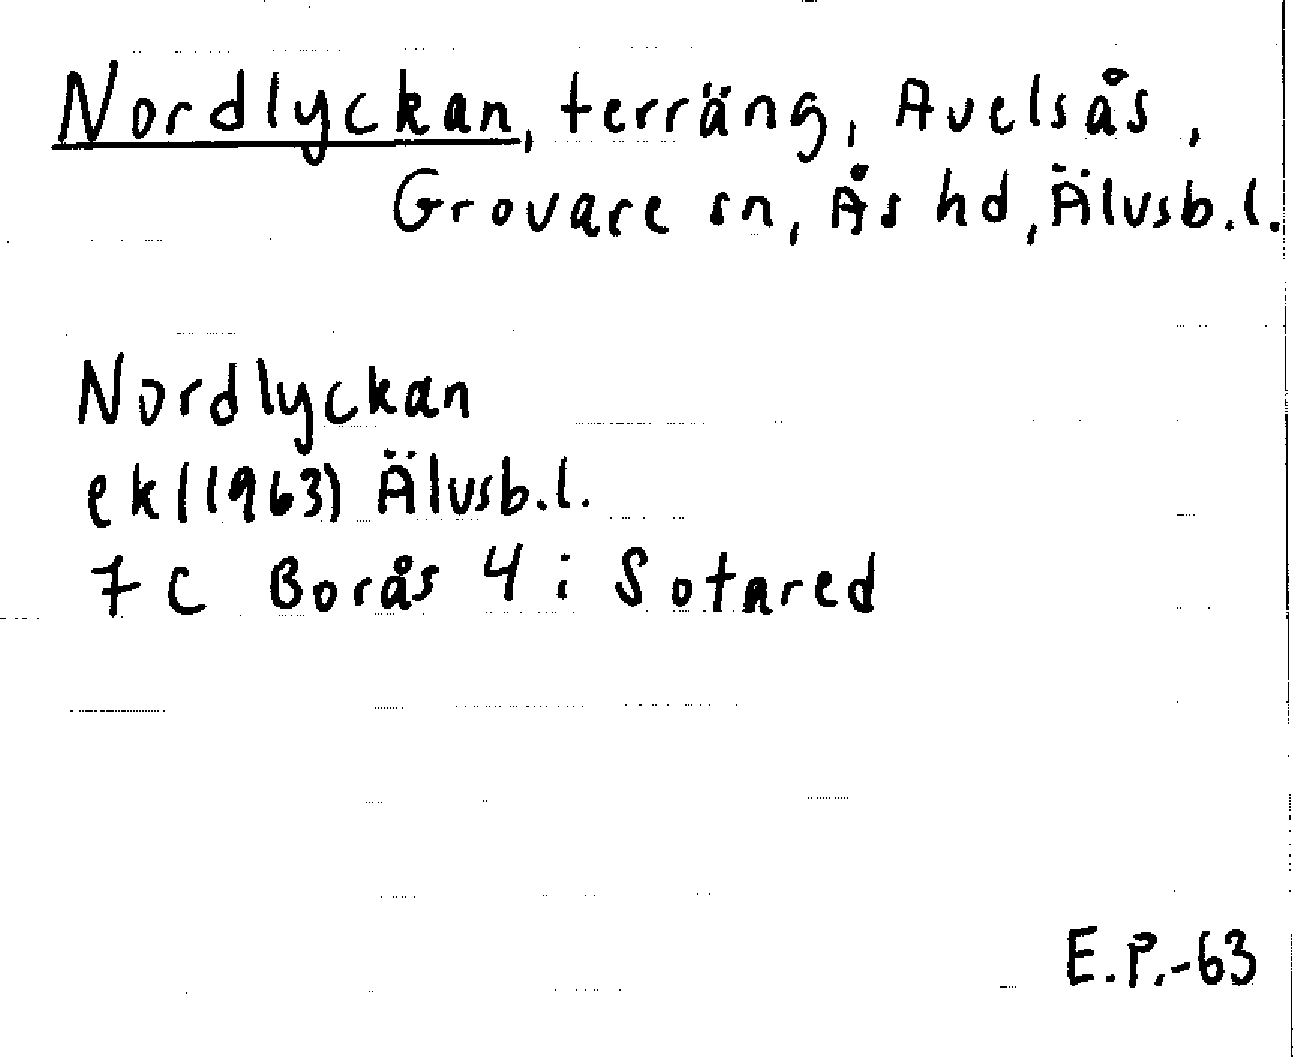 Nordlyckan, terräng, Avelsås,
Grovare sn, Ås hd, Älvsb.l.
Nordlyckan
ekl(1963) Älvsb.l.
7 C Borås 4 i Sotared
E.P.-63